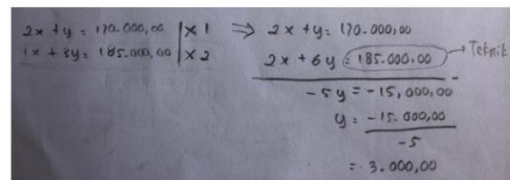 2x + y = 170.000,00 | x 1 ⇒ 2x + y = 170.000,00
1x + 3y = 185.000,00 | x 2 2x + 6y = 185.000,00 → Teknik
-
-5y = -15,000,00
y = -15.000,00
-5
= 3.000,00